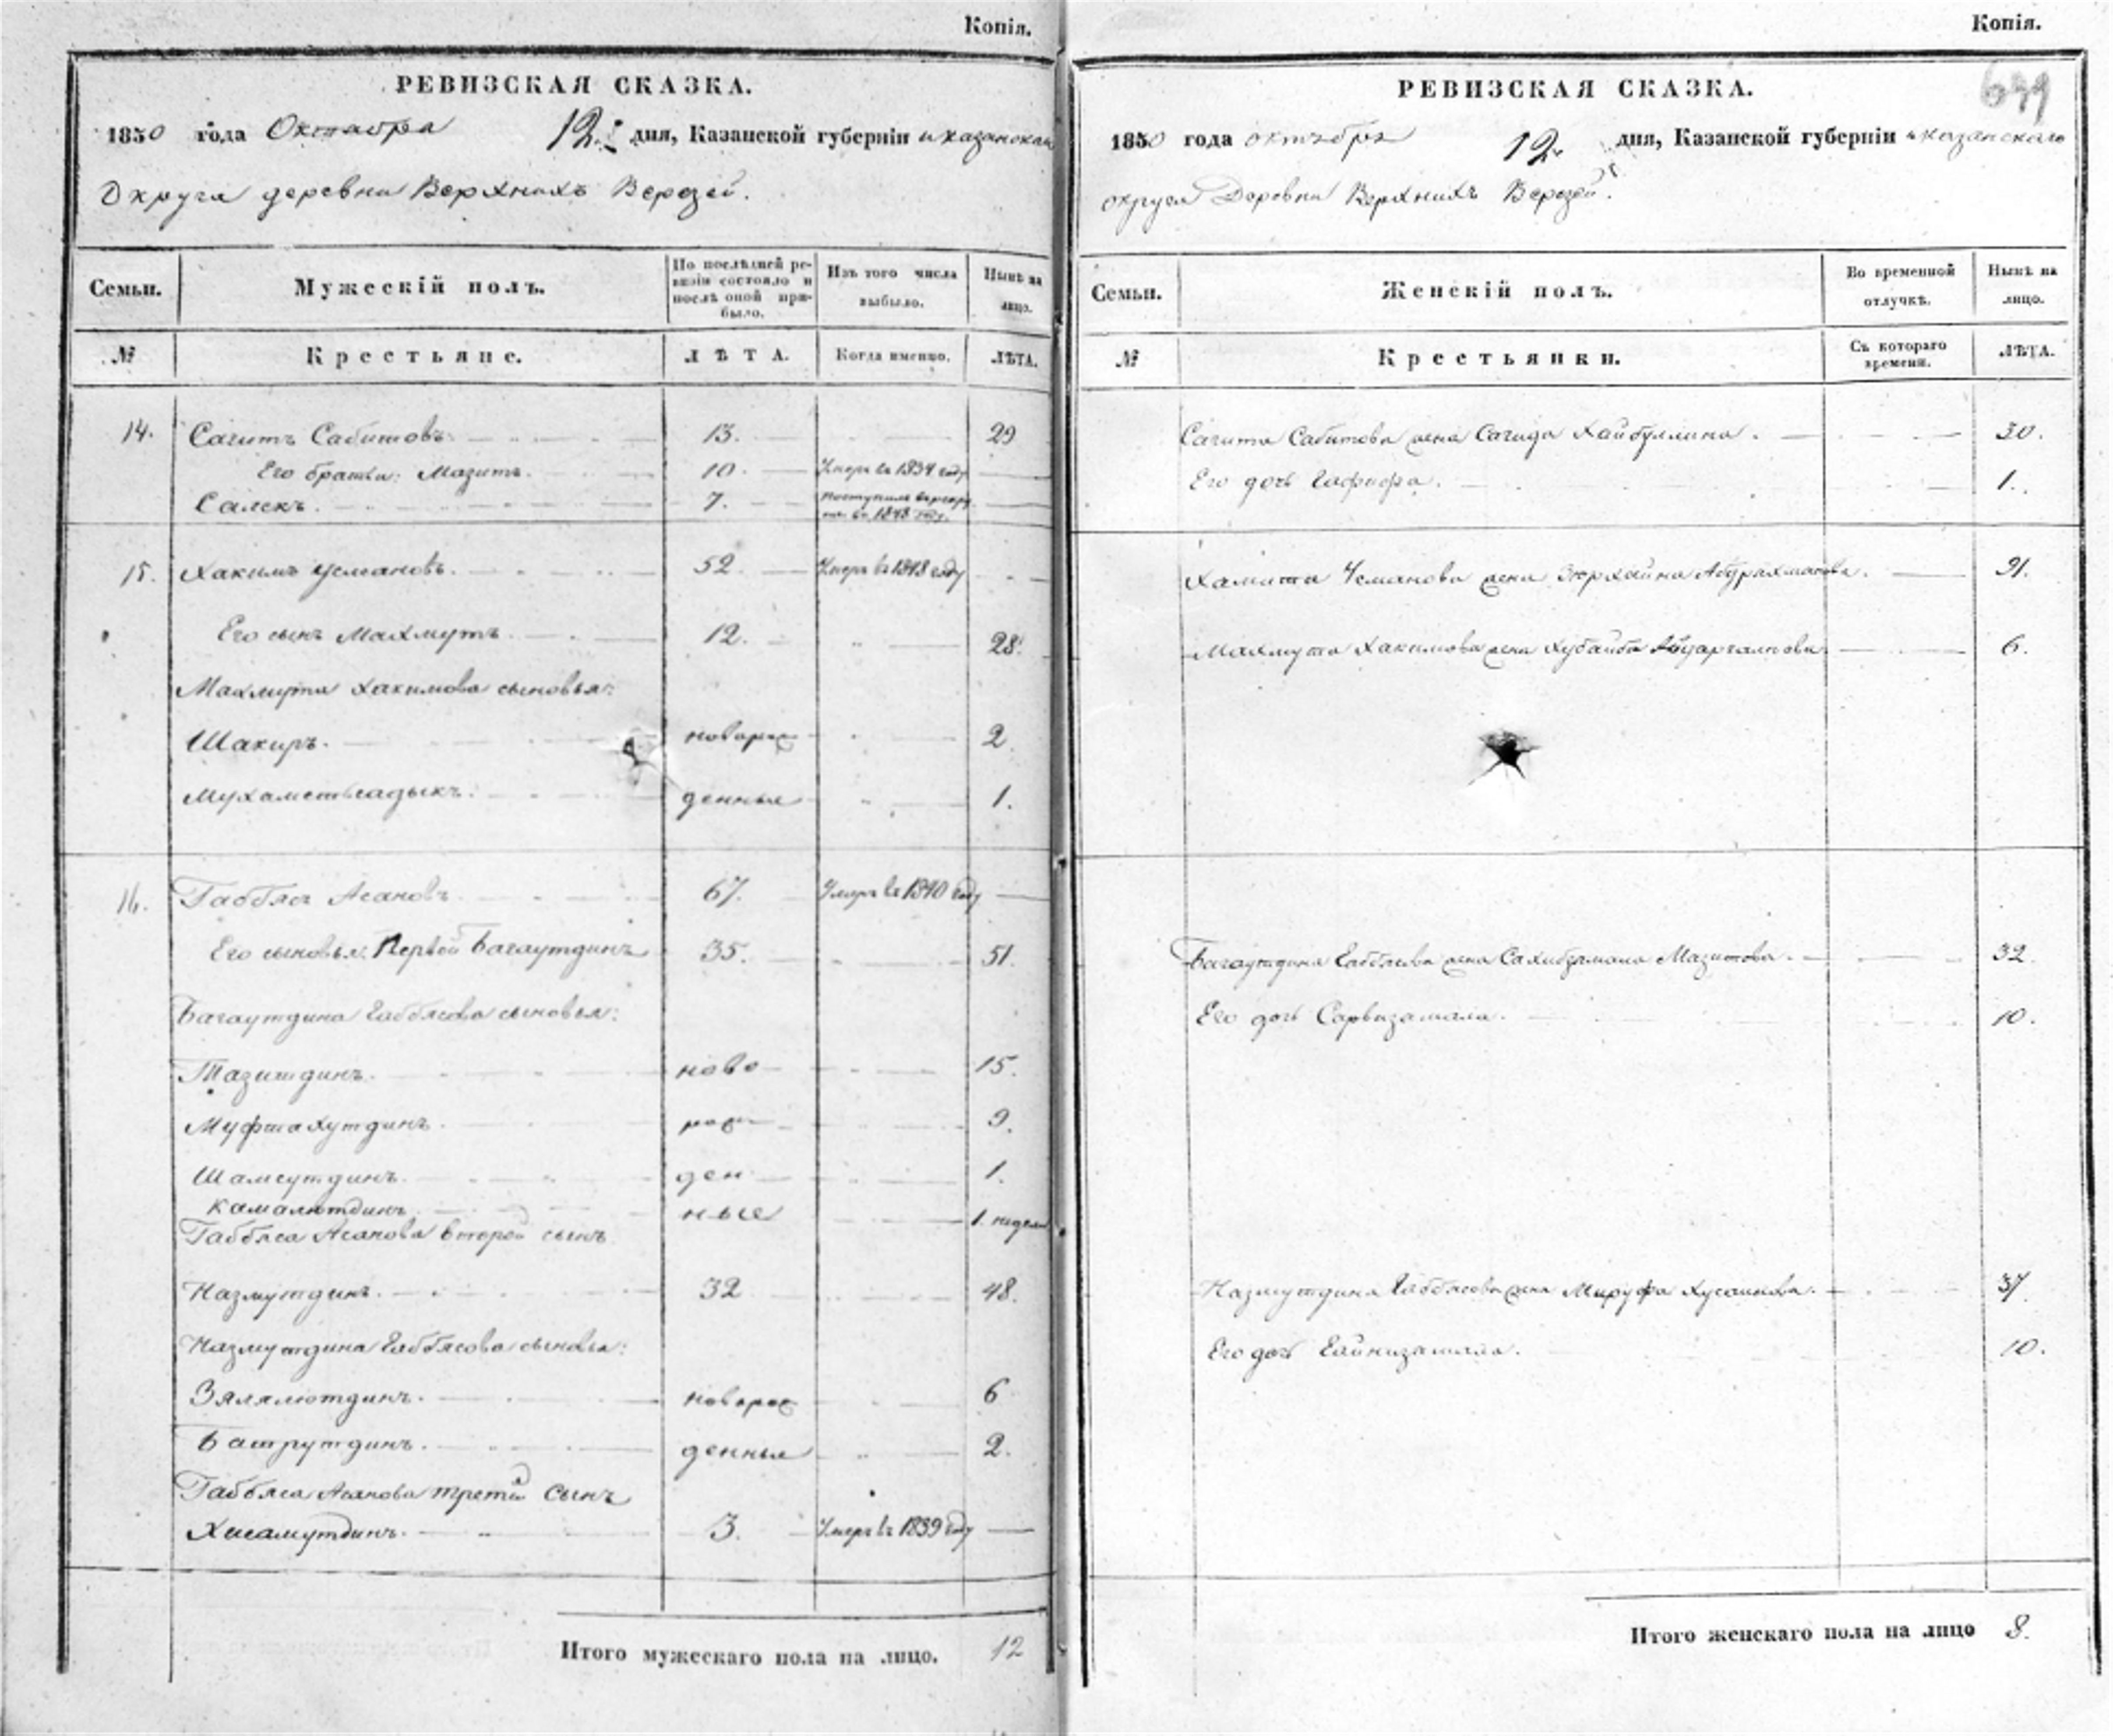 Копія.
РЕВИЗСКАЯ СКАЗКА.
1850 года Октабра 12.го дня, Казанской губерніи и казанскаго
Округа деревни Верхнихъ Верезей.
Семьи.
Мужескій полъ.
По послѣдней ре-
визіи состояло и
послѣ оной при-
было.
Изъ того числа
выбыло.
Нынѣ на
лицо.
№
Крестьяне.
ЛѢТА.
Когда именно.
ЛѢТА.
14. Сагитъ Сабитовъ. 13. 29
Его братья: Мазитъ. 10. Умеръ въ 1834 году
Салекъ. 7. поступилъ въ рекру
ты въ 1848 году.
15. Хакимъ Усмановъ. 52. Умеръ въ 1848 году
Его сынъ Махмутъ. 12. 28.
Махмута Хакимова сыновья:
Шакиръ. новорож 2.
Мухаметьсадыкъ. денные 1.
16. Габбясъ Асановъ. 67. Умеръ въ 1840 году
Его сыновья: Первой Багаутдинъ 35. 51.
Багаутдина Габбясова сыновья:
Тазитдинъ. ново 15.
Муфтахутдинъ. рож 9.
Шамсутдинъ. ден 1.
Камалютдинъ. ные 1. недели
Габбяса Асанова второй сынъ
Назмутдинъ. 32 48.
Назмутдина Габбясова сыновья:
Зялялютдинъ. новорож 6
Батрутдинъ. денные 2.
Габбяса Асанова третій сынъ
Хисамутдинъ. 3. Умеръ въ 1839 году
Итого мужескаго пола на лицо. 12
Копія.
699
РЕВИЗСКАЯ СКАЗКА.
1850 года октября 12. дня, Казанской губерніи и казанскаго
округа Деровни Верхнихъ Верезей.
Семьи.
Женскій полъ.
Во временной
отлучкѣ.
Нынѣ на
лицо.
№
Крестьянки.
Съ котораго
времени.
ЛѢТА.
Сагита Сабитова жена Сагида Хайбуллина. 30.
Его дочь Гафифа. 1.
Усманова жена Зюрхайна Абдрахманова.
Махмута Хакимова жена Хубайба 6.
Багаутдина Габбясова жена Сахибзямала Мазитова. 32.
Его дочь Сарвизамала. 10.
Назмутдина Габбясова жена Мируфа Хусаинова. 37.
Его дочь Гайнизамала. 10.
Итого женскаго пола на лицо 8.